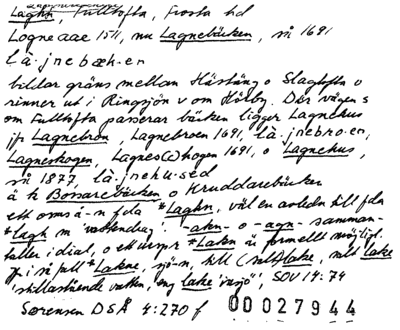 Laghn, Fulltofta, Frosta hd
Logneaae 1511, nu Lagnebäcken, så 1691
là·jnebæk·en
bildar gräns mellan Hästäng o Slagtofta o
rinner ut i Ringsjön v om Hörby. Där vägen s
om Fulltofta passerar bäcken ligger Lagnehus
jfr Lagnebron, Lagnebroen 1691, là·jnebro·en,
Lagneskogen, Lagnes(c)hogen 1691, o Lagnehus,
så 1877, là·jnehu·sed
å h Bossarebäcken o Hruddarebäcken
ett orms å-n fda *Laghn, väl en avledn till fda
*lagh m 'vattendrag'. -akn- o -agn- samman-
faller i dial, o ett urspr *Lakn är formellt möjligt.
i så fall *Lakne, sjö-n, till lake
'stillastående vatten, eng lake 'insjö', SOV 14:74
Sørensen DSÅ 4:270 f
00027944